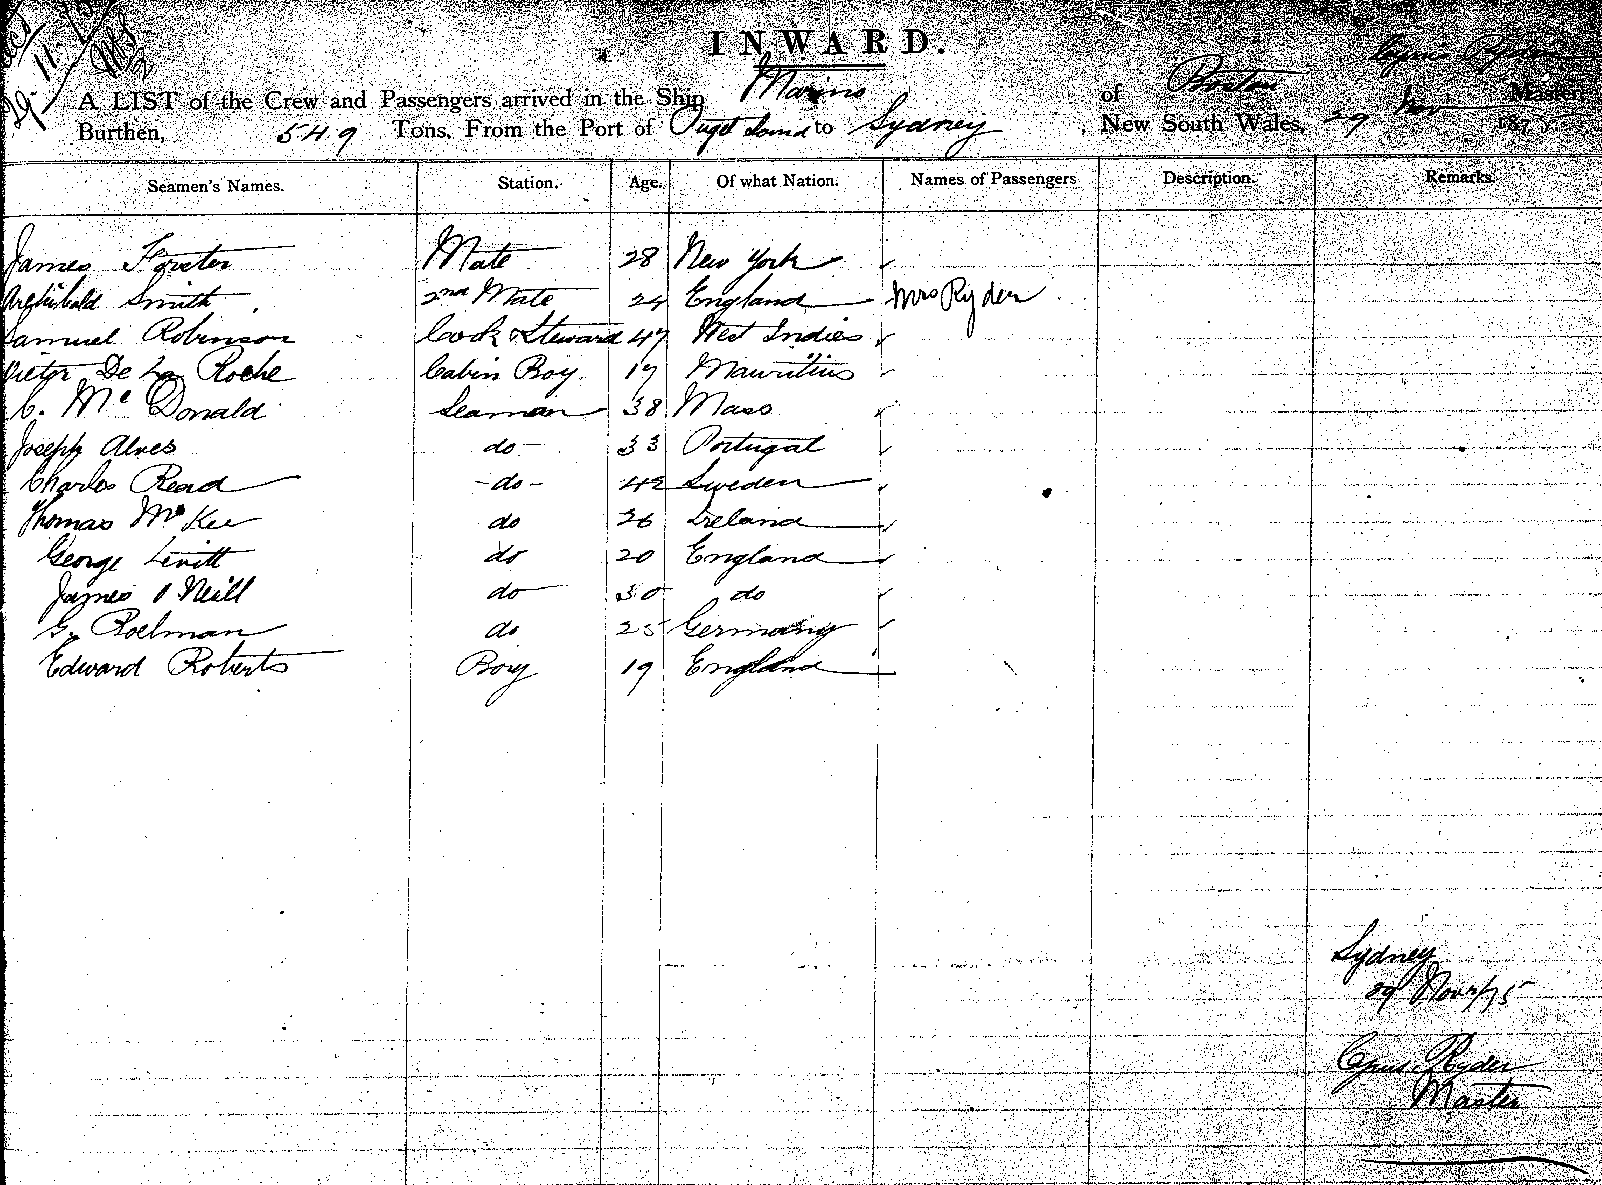 INWARD.
A LIST of the Crew and Passengers arrived in the Ship Marino of Boston Cyrus Ryder Master
Burthen, 549 Tons. From the Port of Puget Sound to Sydney, New South Wales, 29 Nov 187
Seamen's Names. Station. Age. Of what Nation. Names of Passengers Description. Remarks.
James Forster Mate 28 New York
Archibald Smith 2nd Mate 24 England Mrs Ryder
Samuel Robinson Cook & Steward 47 West Indies
Victor De La Roche Cabin Boy 17 Mauritius
C. Mc Donald Seaman 38 Mass
Joseph Alves do 33 Portugal
Charles Read - do - 42 Sweden
Thomas McKee do 26 Ireland
George Levitt do 20 England
James O Neill do 30 do
G. Roelman do 25 Germany
Edward Roberts Boy 19 England
Sydney
29 Novr/75
Cyrus Ryder
Master